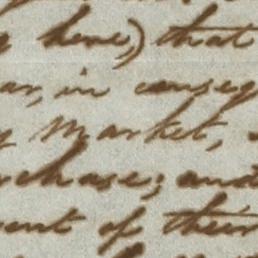 here) that
in conseq
Market,
rchase; and
ent of their